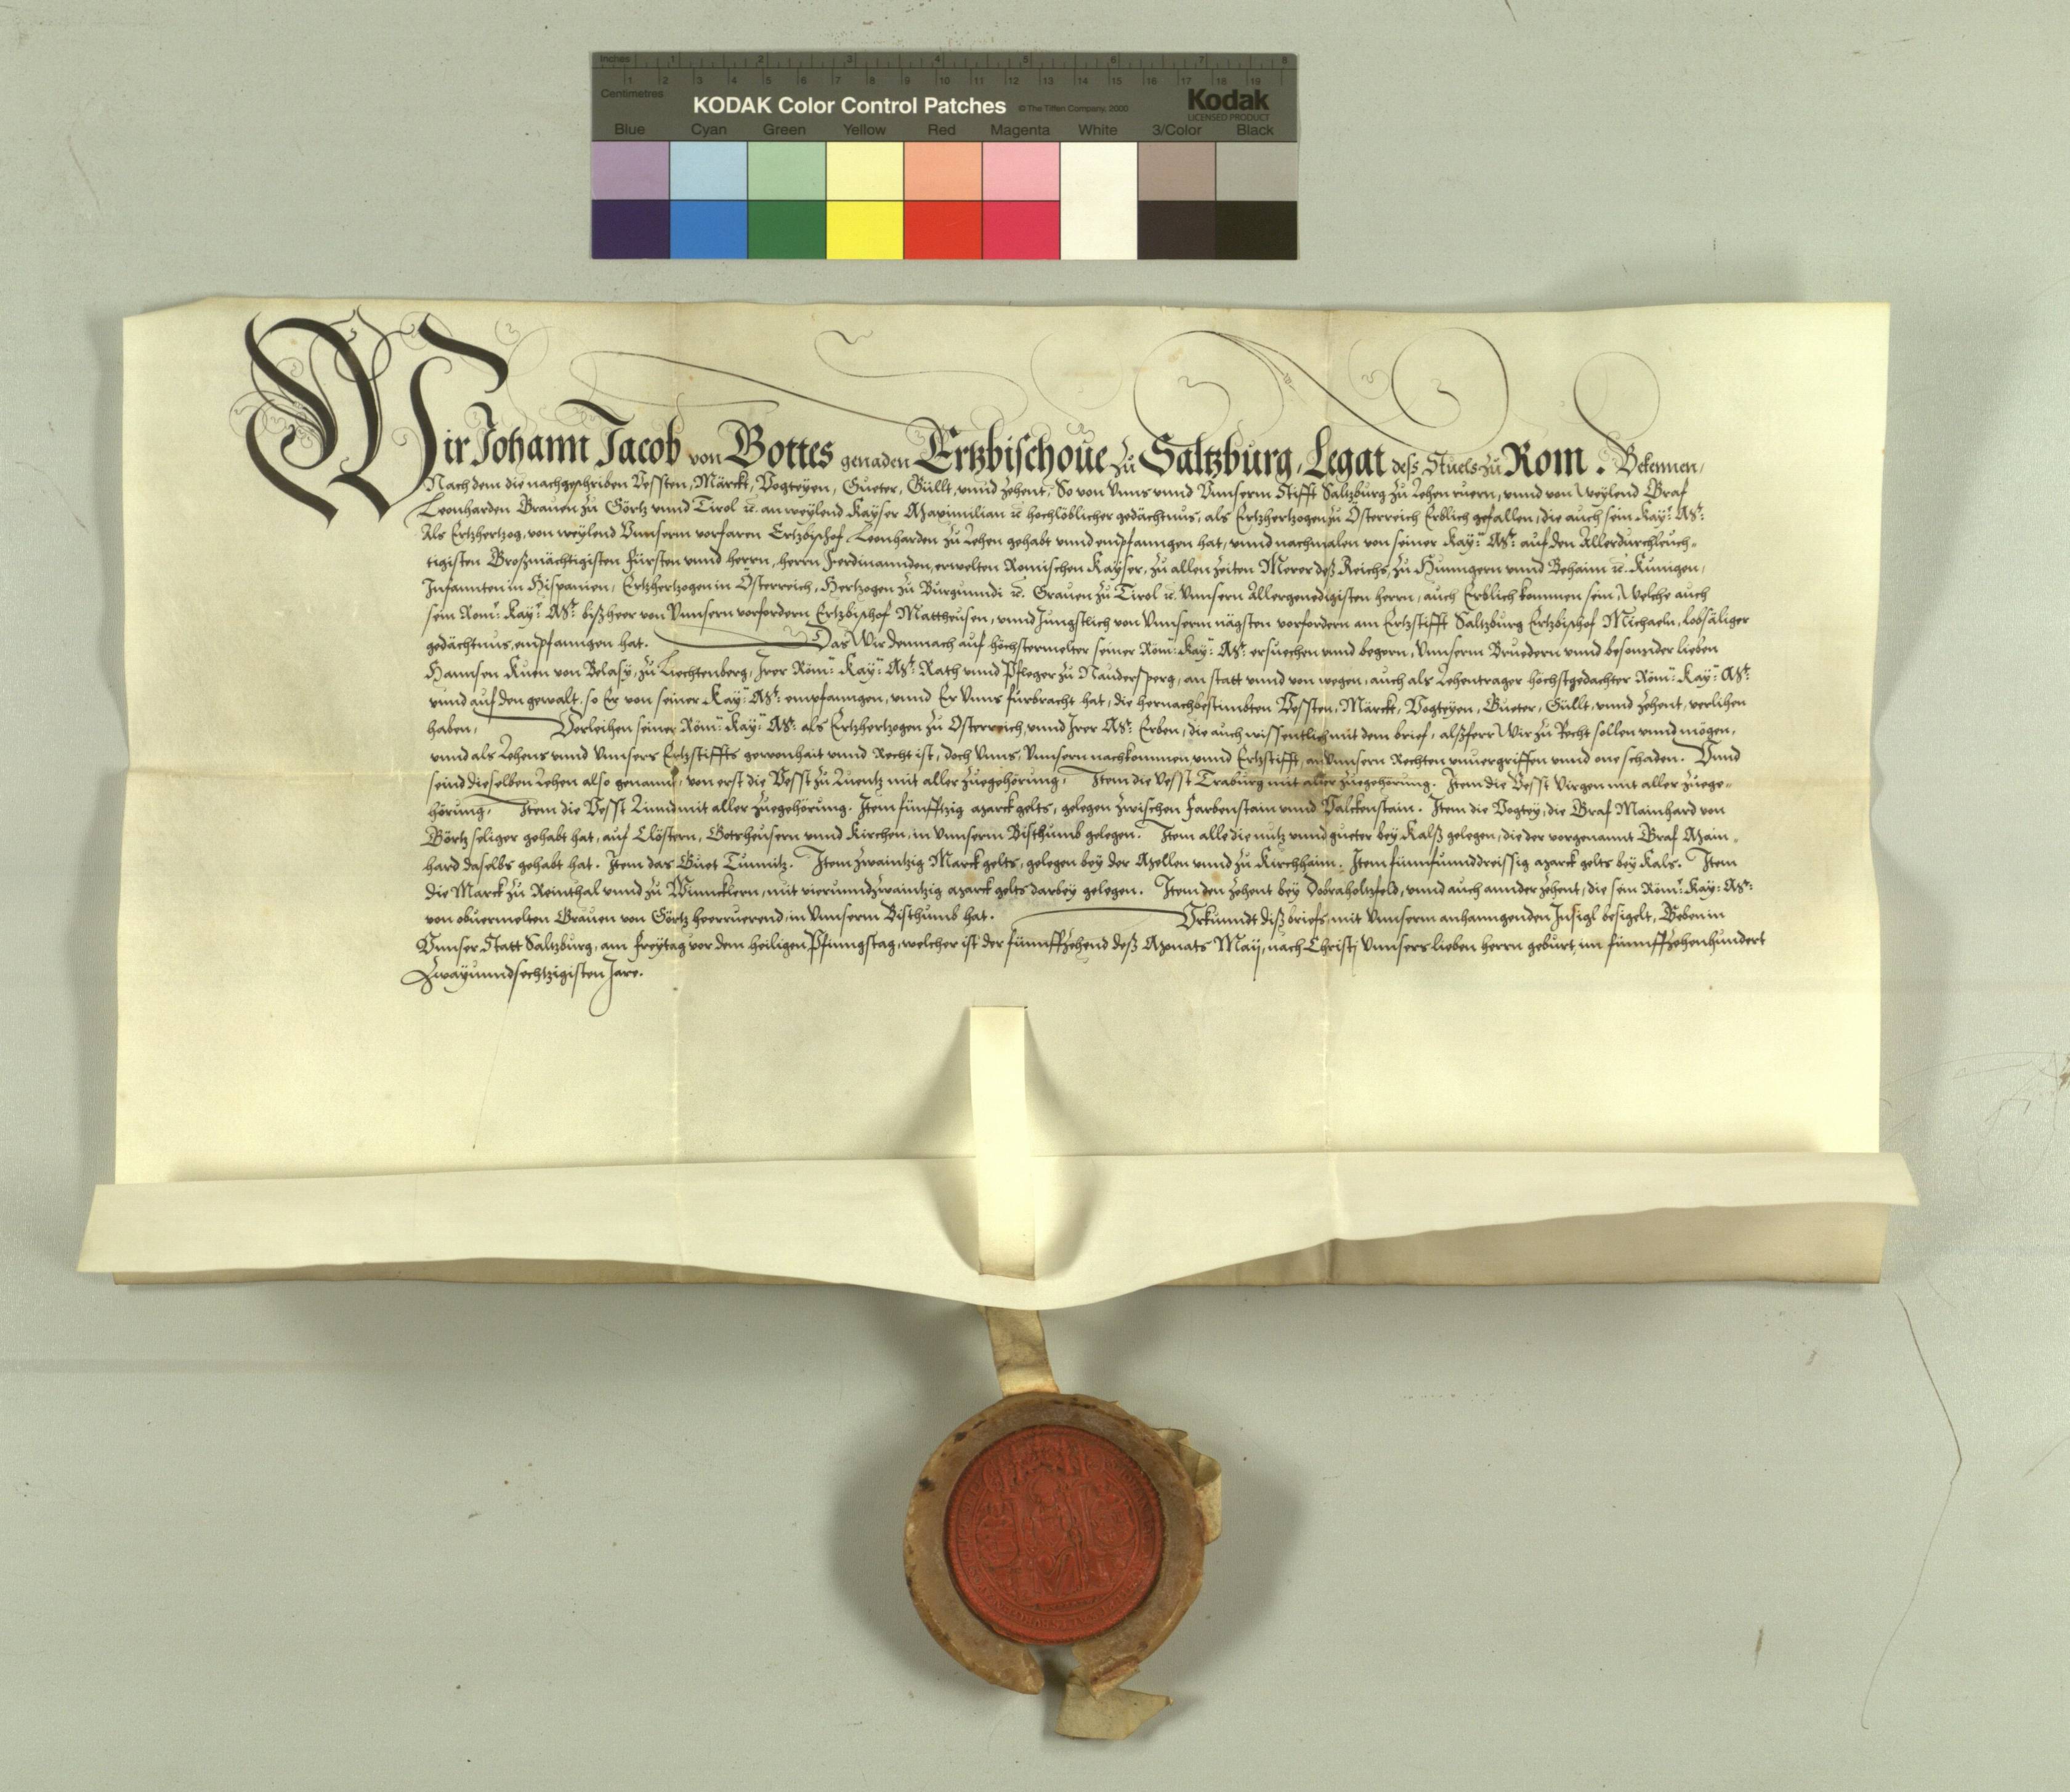 Inches 1 2 3 4 5 6 7 8
1 2 3 4 5 6 7 8 9 10 11 12 13 14 15 16 17 18 19
Centimetres
KODAK Color Control Patches © The Tiffen Company, 2000 Kodak
LICENSED PRODUCT
Blue Cyan Green Yellow Red Magenta White 3/Color Black
Wir Johann Jacob von Gottes genaden Ertzbischoue zu Saltzburg, Legat dess Stuels zu Rom. Bekennen,
Nachdem die nachgeschriben Vessten, Märckt, Vogteyen, Gueter, Güllt, vnnd Zehent, So von Vnns vnnd Vnnserm Stifft Saltzburg zu Lehen ruern, vnnd von Weylend Graf
Leonharden Grauen zu Görtz vnnd Tirol ꝛc. an weylend Kayser Maximilian ꝛc hochlöblicher gedächtnus, als Ertzhertzogen zu Österreich Erblich gefallen, die auch sein Kay: Mt:
Als Ertzhertzog, von weylend Vnnserm vorfaren Ertzbischof Leonharden zu Lehen gehabt vnnd empfanngen hat, vnnd nachmalen von seiner Kay: Mt: auf den Allerdurchleuch-
tigisten Großmächtigisten Fürsten vnnd herrn, herrn Ferdinannden, erwelten Romischen Kayser, zu allen zeiten Merer deß Reichs, zu Hunngern vnnd Behaim ꝛc. Kunigen,
Infannten in Hispanien, Ertzhertzogen in Österreich, Hertzogen zu Burgunndi ꝛc. Grauen zu Tirol ꝛc. Vnnsern Allergenedigisten herrn, auch Erblich kommen sein, Welche auch
sein Rom: Kay: Mt: bißheer von Vnnsern vorfordern Ertzbischof Mattheusen, vnnd Jungstlich von Vnnserm nägsten vorfordern am Ertzstifft Saltzburg Ertzbischof Michaeln, lobsäliger
gedächtnus, empfanngen hat. Das Wir demnach auf höchstermelter seiner Röm: Kay: Mt: ersuechen vnnd begern, Vnnserm Bruedern vnnd besonnder lieben
Hannsen Kuen von Belasy, zu Liechtenberg, Irer Röm: Kay: Mt: Rath vnnd Pfleger zu Naudersperg, an statt vnnd von wegen, auch als Lehentrager höchstgedachter Röm: Kay: Mt:
vnnd auf den gewalt, so Er von seiner Kay: Mt: empfanngen, vnnd Er Vnns fürbracht hat, die hernachbestimbten Vessten, Märckt, Vogteyen, Gueter, Güllt, vnnd Zehent, verlihen
haben, Verleihen seiner Röm: Kay: Mt: als Ertzhertzogen zu Österreich, vnnd Irer Mt: Erben, die auch wissentlich mit dem brief, alßferr Wir zu Recht sollen vnnd mögen,
vnnd als Lehens vnnd Vnnsers Ertzstiffts gewonhait vnnd Recht ist, doch Vnns, Vnnsern nachkommen vnnd Ertzstifft, an Vnnsern Rechten vnuergriffen vnnd one schaden. Vnnd
seind dieselben Lehen also genannt, von erst die Vesst zu Luentz mit aller Zuegehörung, Item die Vesst Traburg mit aller zuegehörung. Item die Vesst Virgen mit aller Zuege-
hörung, Item die Vesst Linnd mit aller Zuegehörung. Item fünfftzig marck gelts, gelegen zwischen Farbenstain vnnd Valckenstain. Item die Vogtey, die Graf Mainhard von
Görtz seliger gehabt hat, auf Clöstern, Gotzheusern vnnd Kirchen, in Vnnserm Bisthumb gelegen. Item alle die nutz vnnd gueter bey Kalß gelegen, die der vorgenannt Graf Main-
hard daselbs gehabt hat. Item das Guet Tumnitz. Item Zwaintzig Marck gelts, gelegen bey der Mellen vnnd zu Kirchhaim. Item fünnfunnddreissig marck gelts bey Kals. Item
die Marck zu Reinthal vnnd zu Winncklern, mit vierunndzwaintzig marck gelts darbey gelegen. Item den Zehent bey Dobraholnfeld, vnnd auch annder Zehent, die sein Röm: Kay: Mt:
von obuermelten Grauen von Görtz heerruerend, in Vnnserm Bisthumb hat. Vrkunndt diß briefs, mit Vnnserm anhanngenden Insigl besigelt, Geben in
Vnnser Statt Saltzburg, am Freytag vor dem heiligen Pfinngstag, welcher ist der fünnffzehend deß Monats May, nach Christj Vnnsers lieben herrn geburt, im fünnffzehenhundert
Zwayunndsechtzigisten Jare.